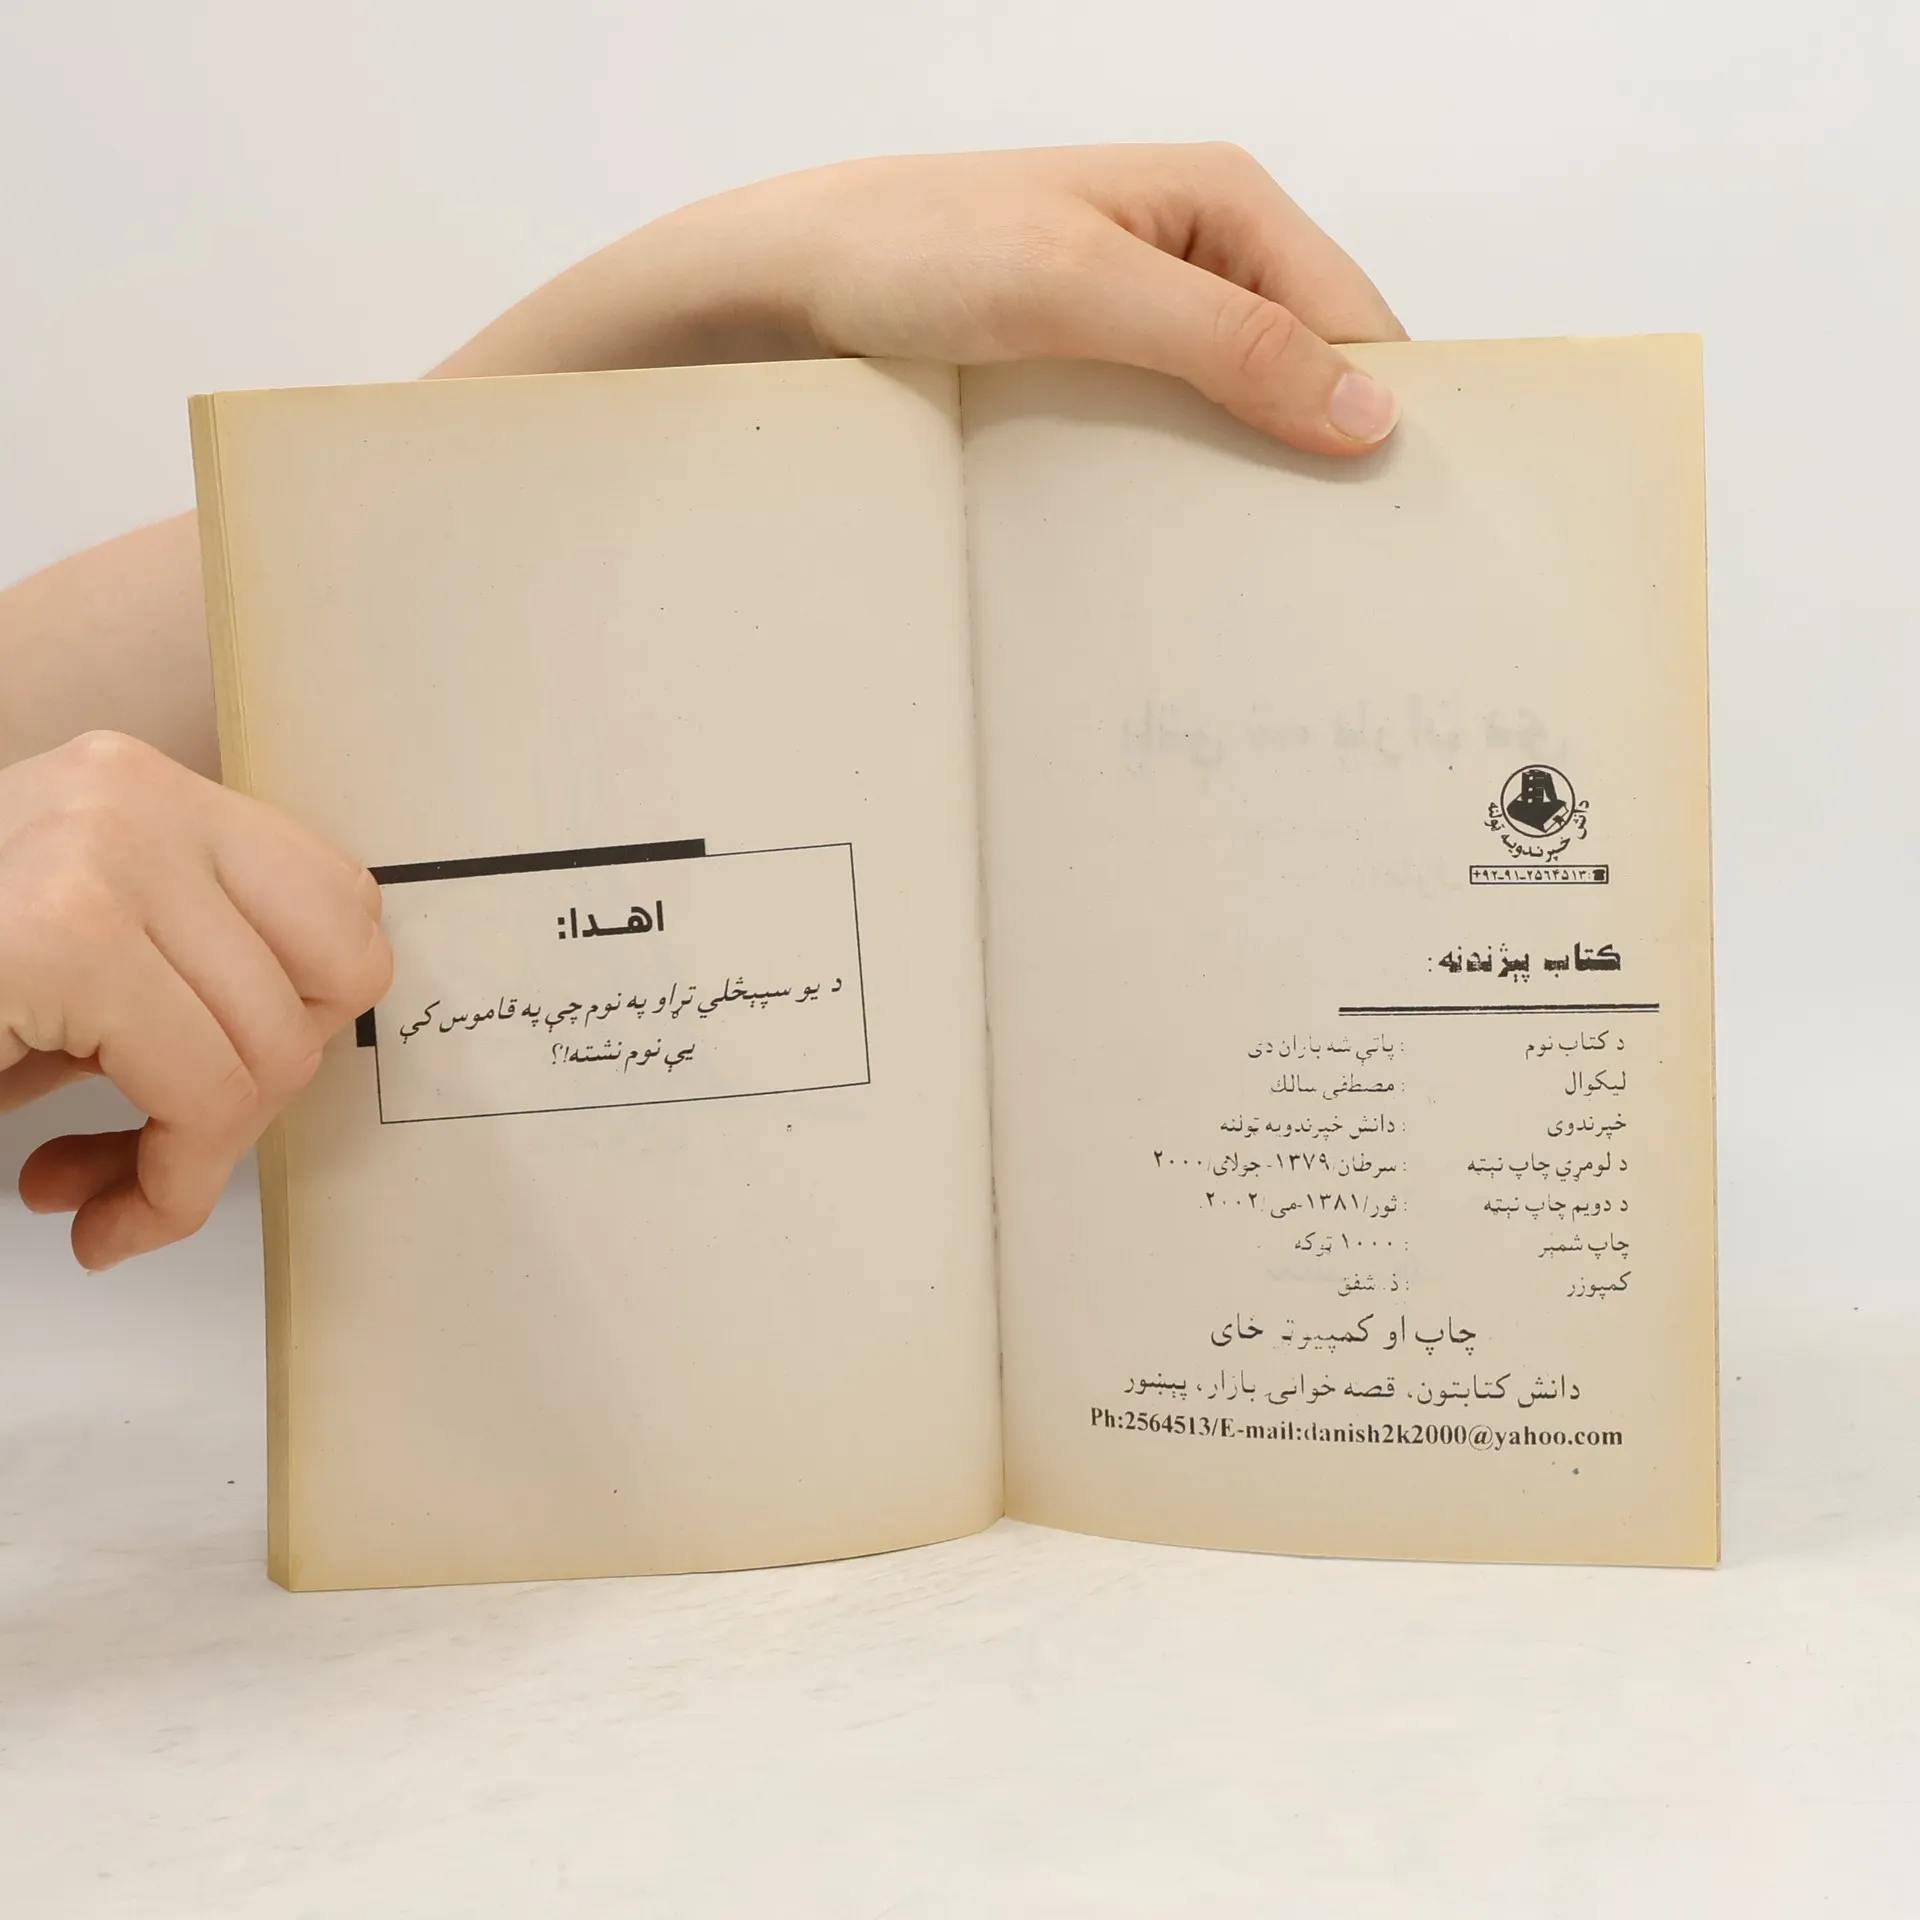 دانش خپرندویه ټولنه
☎:+۹۲-۹۱-۲۵۶۴۵۱۳
کتاب پېژندنه:
د کتاب نوم : پاتې شه باران دی
لیکوال : مصطفی سالك
خپرندوی : دانش خپرندویه ټولنه
د لومړي چاپ نېټه : سرطان/۱۳۷۹- جولای/۲۰۰۰
د دویم چاپ نېټه : ثور/۱۳۸۱-می/۲۰۰۲
چاپ شمېر : ۱۰۰۰ ټوکه
کمپوزر : ذ. شفق
چاپ او کمپیوټر ځای
دانش کتابتون، قصه خوانی بازار، پېښور
Ph:2564513/E-mail:danish2k2000@yahoo.com
اهـدا:
د یو سپېڅلي تړاو په نوم چې په قاموس کې
یې نوم نشته!؟